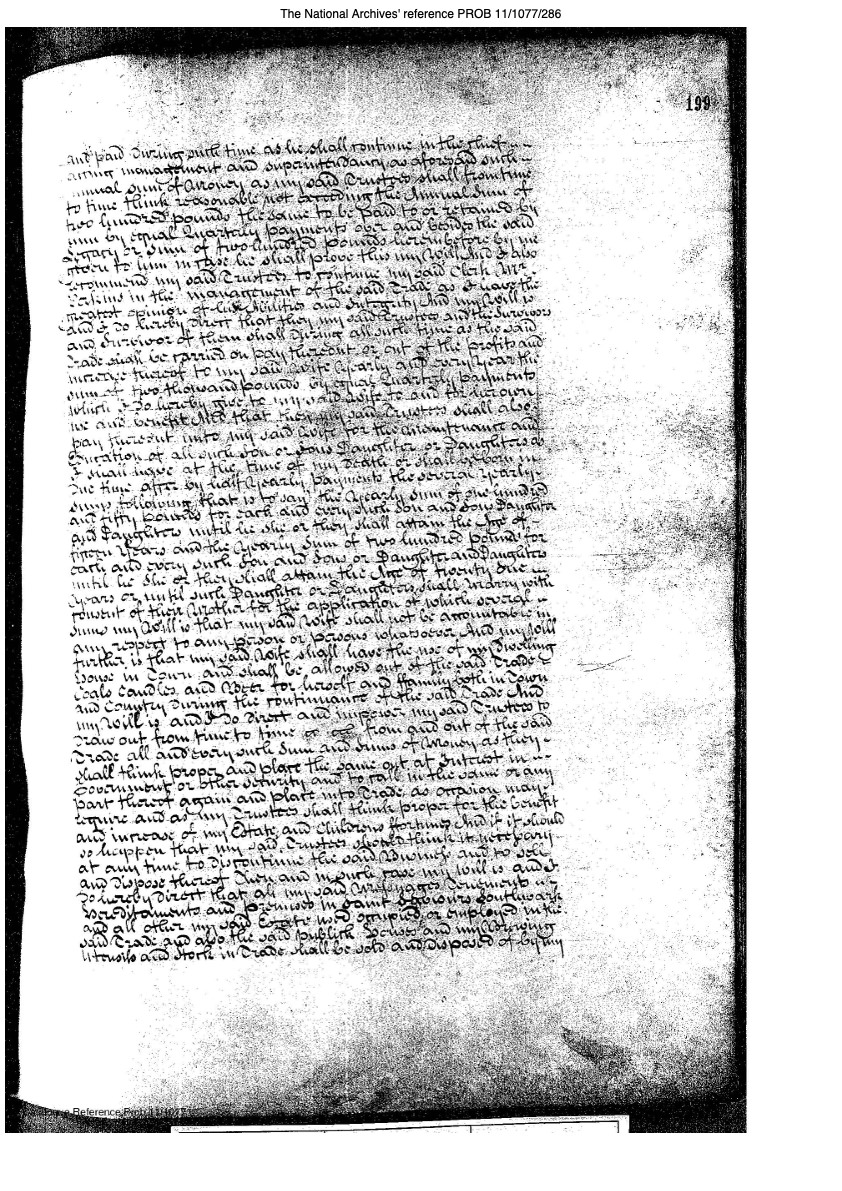 The National Archives' reference PROB 11/1077/286
199
and paid during such time as he shall continue in the chief
acting management and superintendancy as aforesaid such
annual sum of Money as my said Trustees shall from time
to time think reasonable not exceeding the Annual Sum of
two hundred pounds the same to be paid to or retained by
him by equal Quarterly payments over and besides the said
Legacy or Sum of two hundred pounds herein before by me
given to him in case he shall prove this my Will And I also
recommend my said Trustees to continue my said Clerk Mr.
Perkins in the management of the said Trade as I have the
greatest opinion of his Abilities and Integrity And my Will is
and I do hereby direct that they my said Trustees and the Survivors
and Survivor of them shall during all such time as the said
Trade shall be carried on pay thereout or out of the profits and
increase thereof to my said Wife Yearly and every Year the
sum of two thousand pounds by equal Quarterly payments
which I do hereby give to my said Wife to and for her own
use and benefit And that they my said Trustees shall also
pay thereout unto my said Wife for the maintenance and
Education of all such son or sons Daughter or Daughters as
I shall leave at the time of my death or shall be born in
due time after by half Yearly payments the several Yearly
sums following that is to say the Yearly sum of one hundred
and fifty pounds for each and every such son and sons Daughter
and Daughters until he she or they shall attain the Age of
fifteen Years and the Yearly sum of two hundred pounds for
each and every such son and sons or Daughter and Daughters
until he she or they shall attain the Age of twenty one
Years or until such Daughter or Daughters shall marry with
consent of their Mother for the application of which several
sums my Will is that my said Wife shall not be accountable in
any respect to any person or persons whatsoever And my Will
further is that my said Wife shall have the use of my Dwelling
house in Town and shall be allowed out of the said Trade
Coals Candles and Beer for herself and ffamily both in Town
and Country during the continuance of the said Trade And
my Will is and I do direct and impower my said Trustees to
draw out from time to time from and out of the said
Trade all and every such Sum and Sums of Money as they
shall think proper and place the same out at Interest in
Government or other security and to call in the same or any
part thereof again and place into Trade as occasion may
require and as my Trustees shall think proper for the benefit
and increase of my Estate and Childrens ffortunes And if it should
so happen that my said Trustees should think it necessary
at any time to discontinue the said Business and to sell
and dispose thereof Then and in such case my Will is and I
do hereby direct that all my said Messuages Tenements
Hereditaments and premises in Saint Saviours Southwark
and all other my said Estate used occupied or employed in the
said Trade and also the said publick Houses and my Brewing
Utensils and Stock in Trade shall be sold and disposed of by my